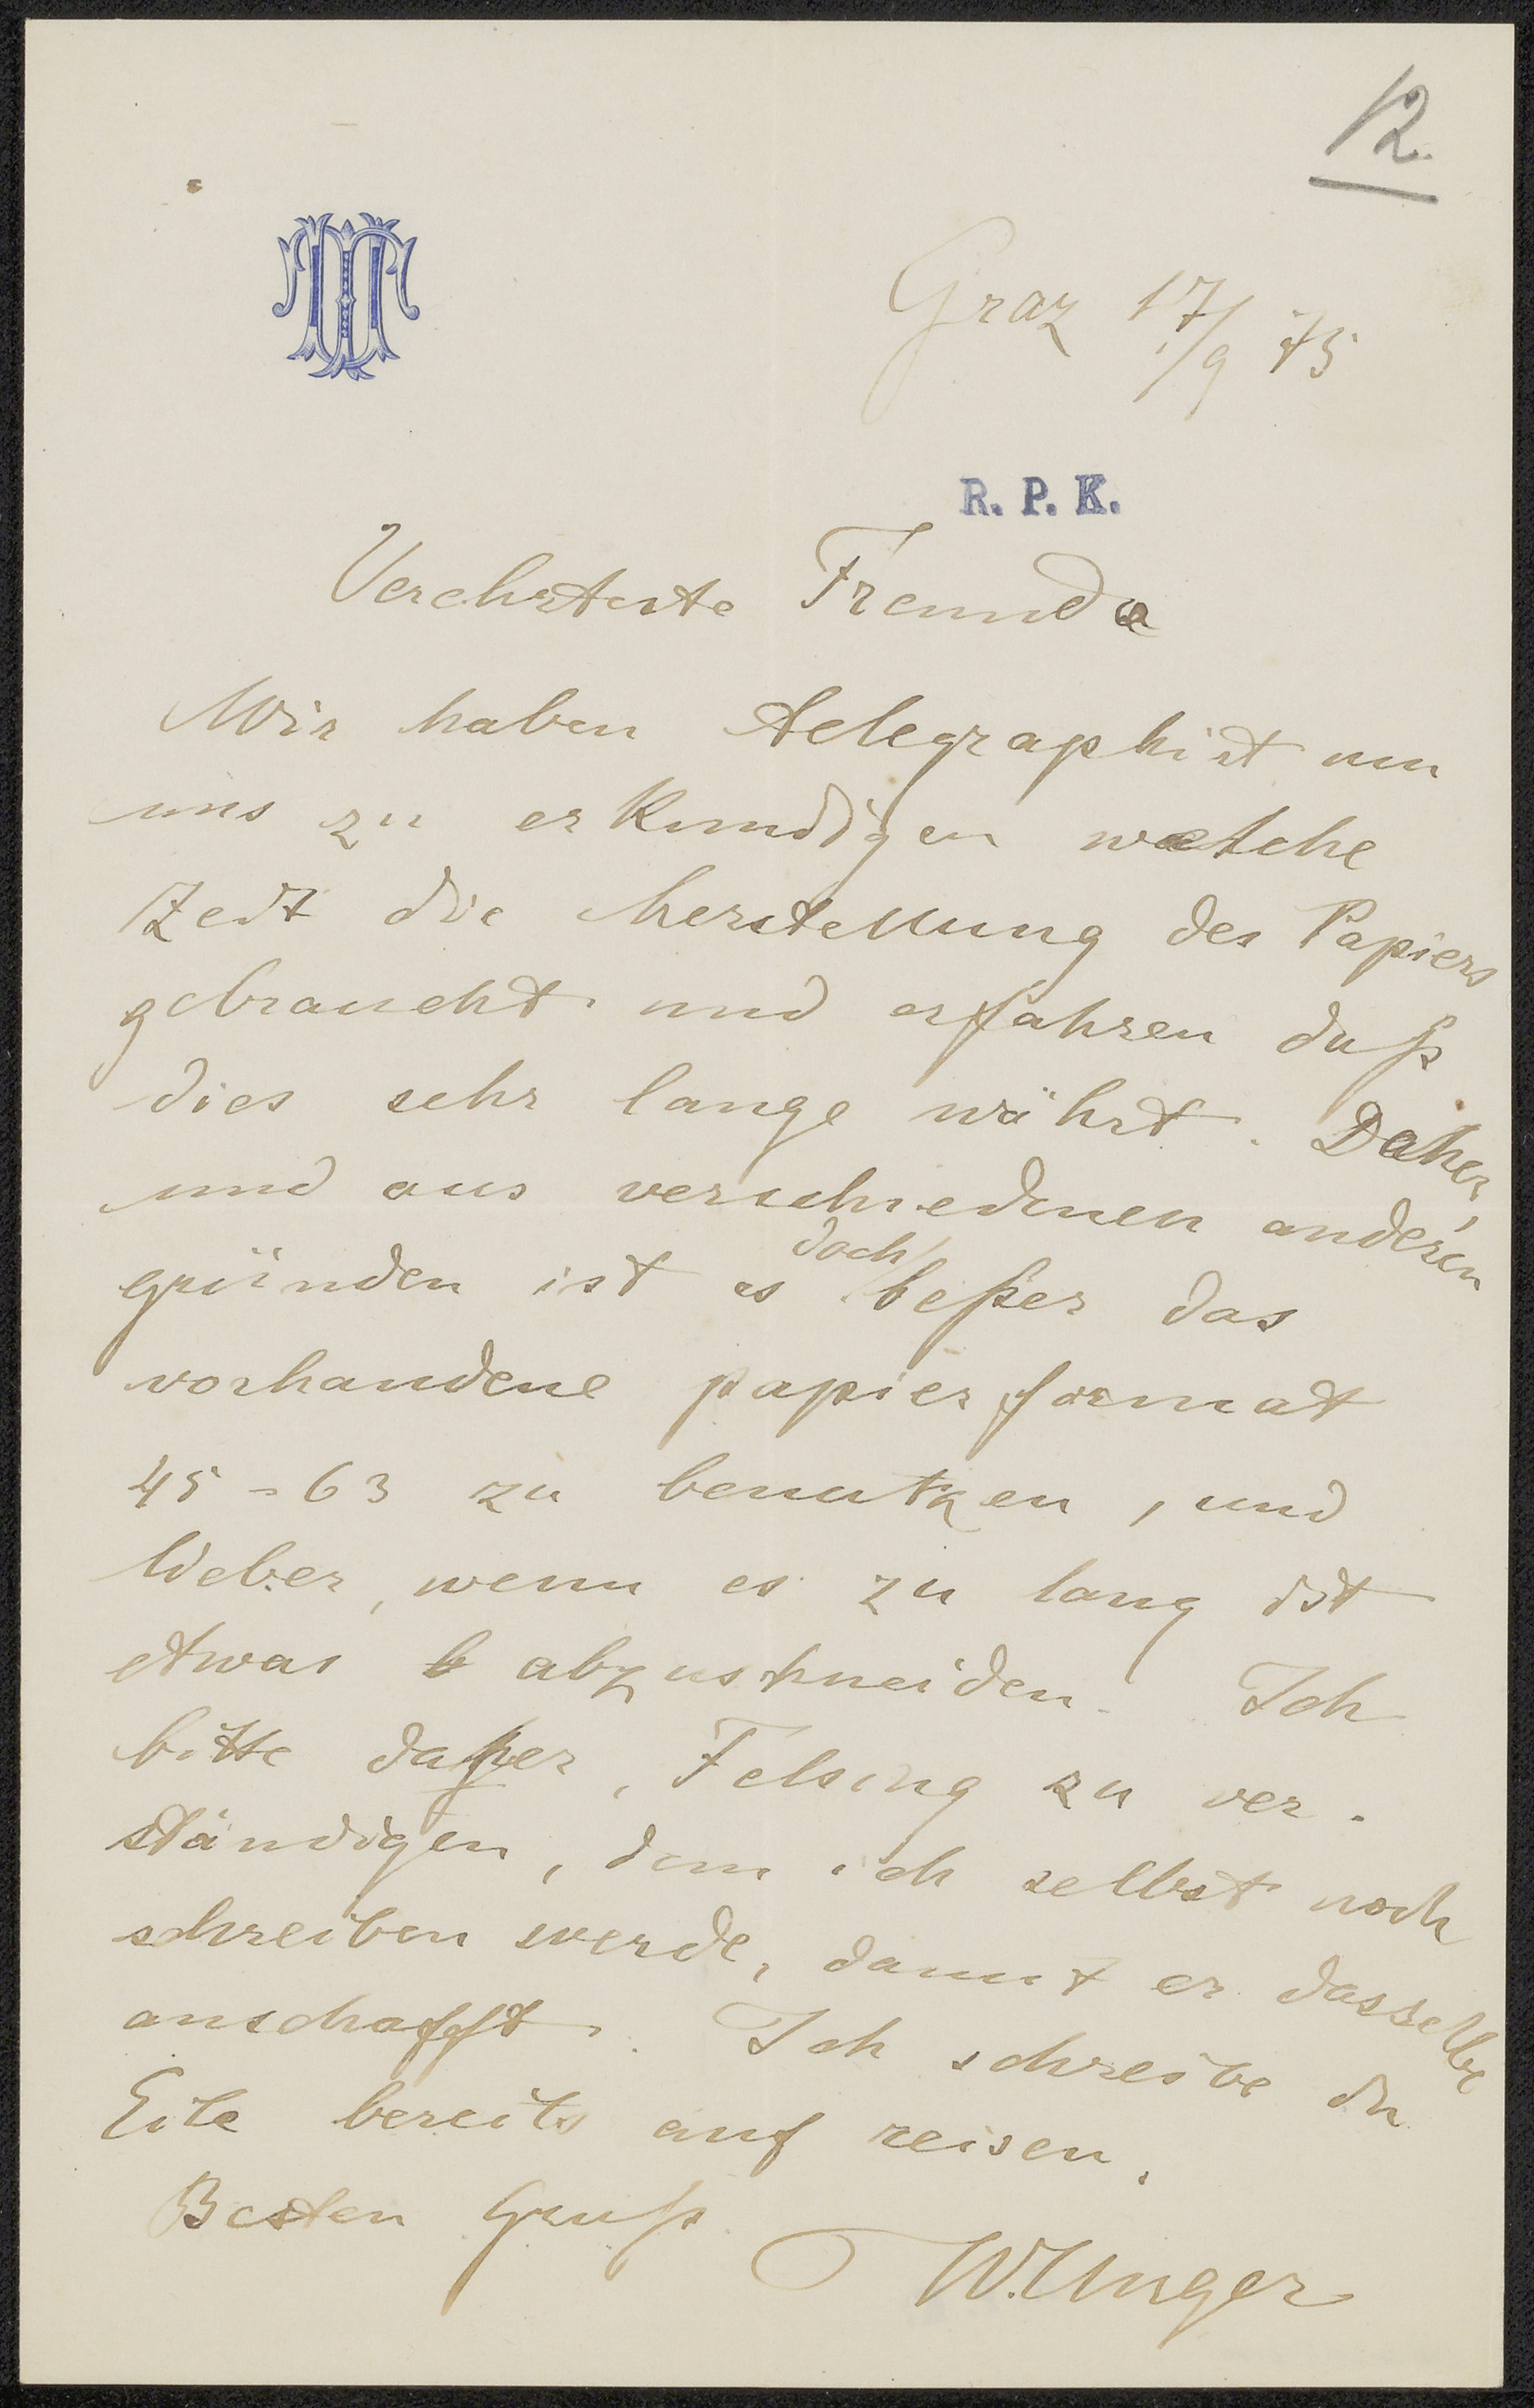 12.
Graz 17/9 75
R. P. K.
Verehrteste Freunde
Wir haben telegraphirt um
uns zu erkundigen welche
Zeit die herstellung des Papiers
gebraucht und erfahren daß
dies sehr lange währt. Daher,
und aus verschiedenen anderen
gründen ist es doch beßer das
vorhandene papierformat
45=63 zu benutzen, und
lieber, wenn es zu lang ist
etwas b abzuschneiden. Ich
bitte daher, Felsing zu ver-
ständigen, dem ich selbst noch
schreiben werde, damit er dasselbe
anschafft. Ich schreibe in
Eile bereits auf reisen.
Besten Gruß
W. Unger